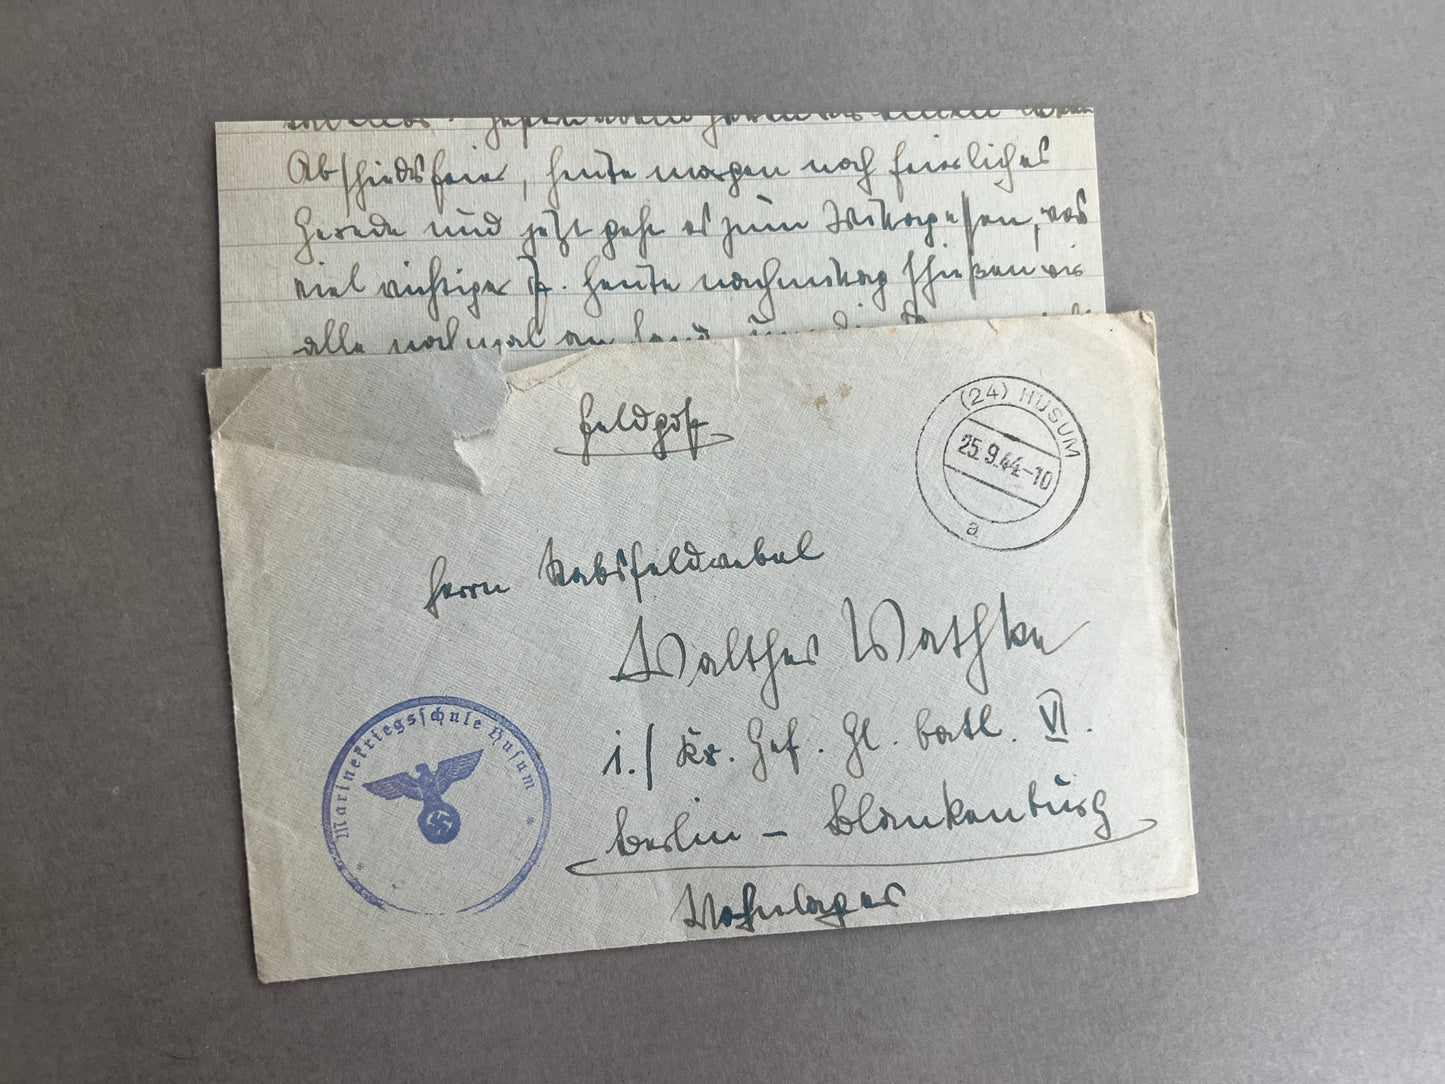 Abschiedsfeier, heute morgen noch feierliches
Gerede und jetzt geht es zum
viel wichtiger ist. Heute nachmittag schießen wir
alle noch mal an Land
Feldpost
(24) HUSUM
25.9.44-10
a
Herrn Stabsfeldwebel
Walther Wathke
1./ Kr. Gef. Gl. Batl. VI.
Berlin - Blankenburg
Wohnlager
Marinekriegsschule Husum